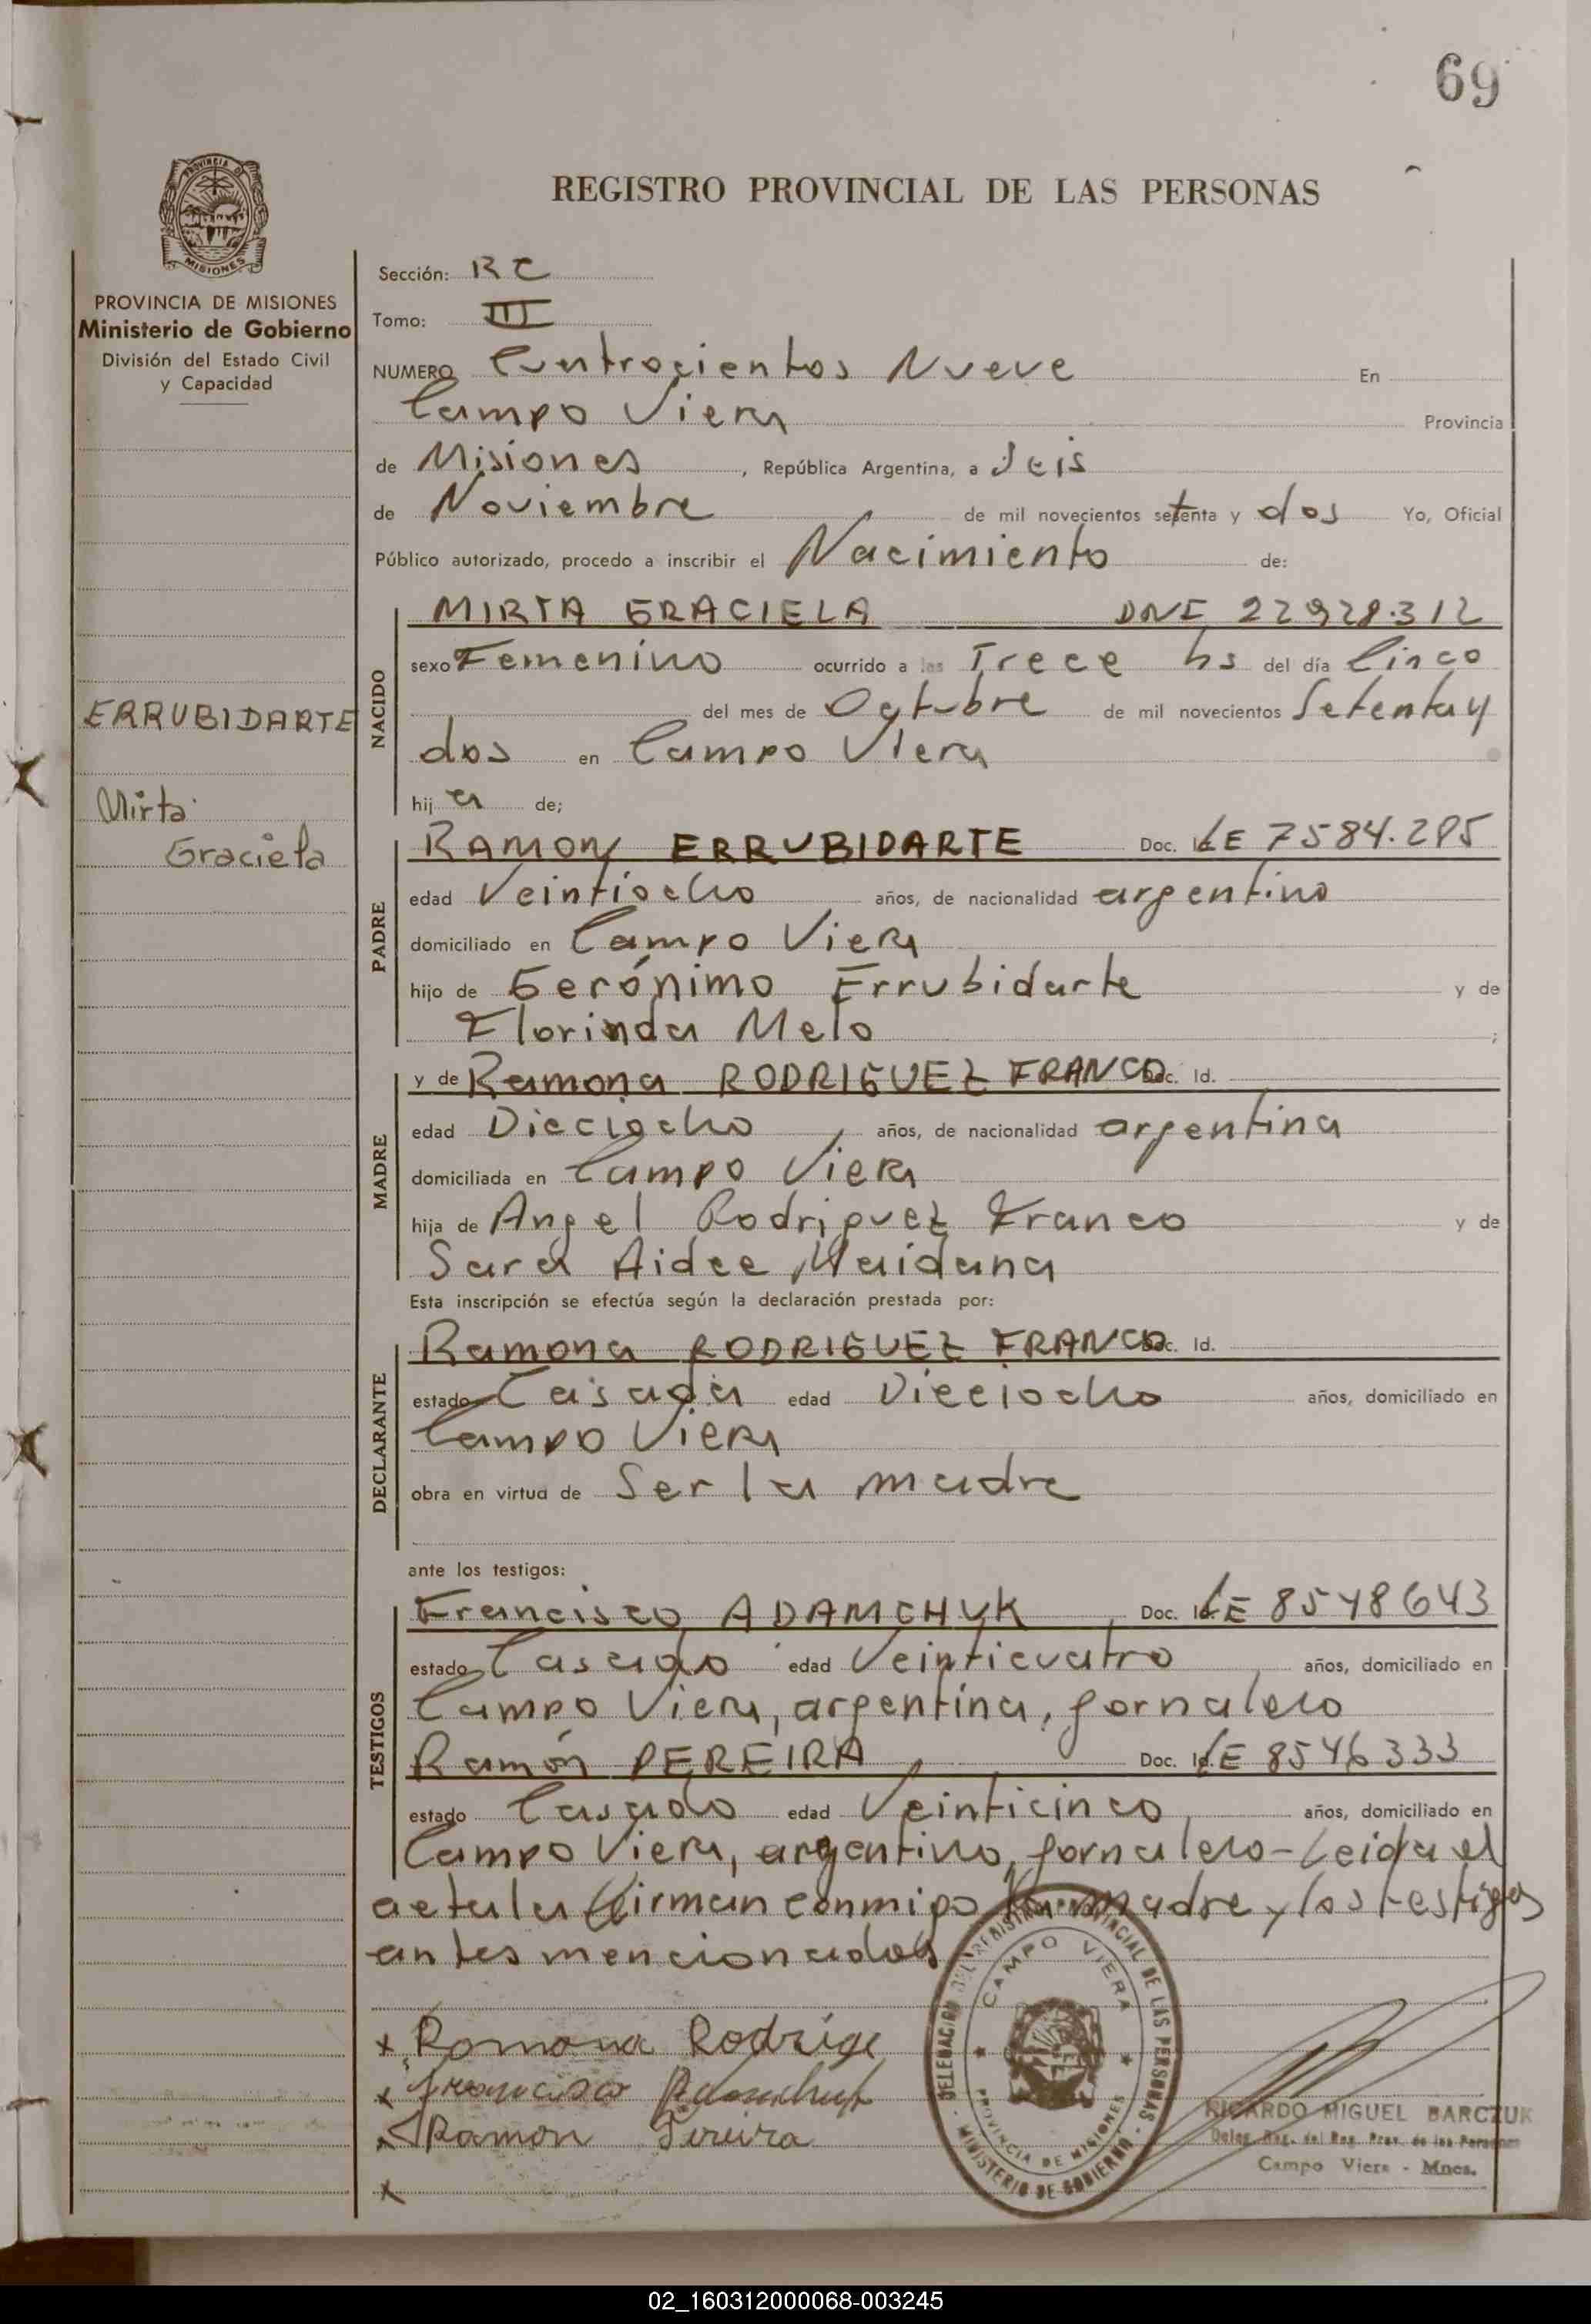 69
REGISTRO PROVINCIAL DE LAS PERSONAS
PROVINCIA DE MISIONES
Ministerio de Gobierno
División del Estado Civil
y Capacidad
ERRUBIDARTE
Mirta
Graciela
Sección: RC
Tomo: III
NUMERO Cuatrocientos Nueve En
Campo Viera Provincia
de Misiones, República Argentina, a Seis
de Noviembre de mil novecientos setenta y dos Yo, Oficial
Público autorizado, procedo a inscribir el Nacimiento de:
NACIDO
MIRTA GRACIELA DNI 22928.312
sexo Femenino ocurrido a las Trece hs del día Cinco
del mes de Octubre de mil novecientos Setenta y
dos en Campo Viera
hij a de;
PADRE
RAMON ERRUBIDARTE Doc. Id. LE 7584.295
edad Veintiocho años, de nacionalidad argentino
domiciliado en Campo Viera
hijo de Gerónimo Errubidarte y de
Florinda Melo ;
MADRE
y de Ramona RODRIGUEZ FRANCO Doc. Id.
edad Dieciocho, años, de nacionalidad argentina
domiciliada en Campo Viera
hija de Angel Rodriguez Franco y de
Sara Aidee Maidana
Esta inscripción se efectúa según la declaración prestada por:
DECLARANTE
Ramona RODRIGUEZ FRANCO Doc. Id.
estado Casada edad Dieciocho años, domiciliado en
Campo Viera
obra en virtud de Ser la madre
ante los testigos:
TESTIGOS
Francisco ADAMCHUK Doc. Id. LE 8548643
estado Casado edad Veinticuatro años, domiciliado en
Campo Viera, argentina, jornalero
Ramón PEREIRA, Doc. Id. LE 8546333
estado Casado edad Veinticinco, años, domiciliado en
Campo Viera, argentino, jornalero - Leida el
acta la firman conmigo la madre y los testigos
antes mencionados
x Ramona Rodrige
x Francisco Adamchuk
x Ramon Pereira
x
DELEGACION DEL REGISTRO PROVINCIAL DE LAS PERSONAS
CAMPO VIERA
PROVINCIA DE MISIONES
MINISTERIO DE GOBIERNO
RICARDO MIGUEL BARCZUK
Deleg. Reg. del Reg. Prov. de las Personas
Campo Viera - Mnes.
02_160312000068-003245